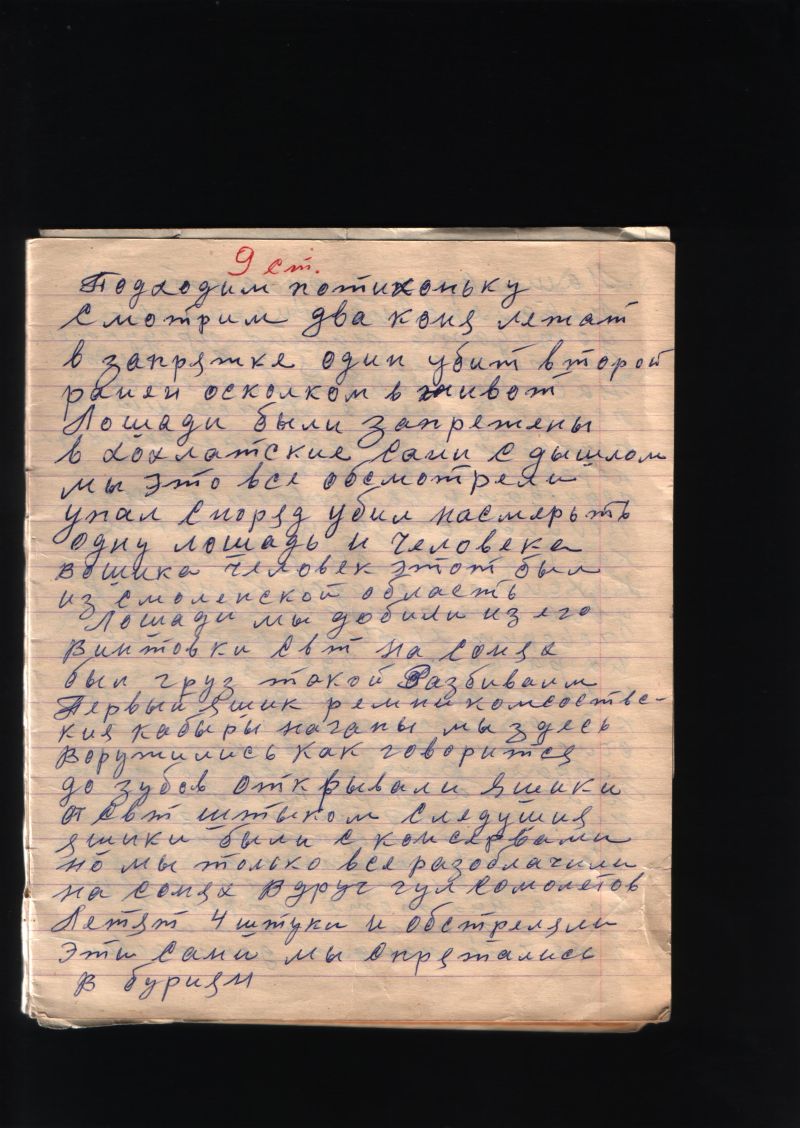 9 ст.
Подходим потихоньку
Смотрим два коня лежат
в запряжке один убит второй
ранен осколком в живот
Лошади были запрежены
в хохлатские сани с дышлом
мы это все обсмотрели
упал сноряд убил насмерьть
одну лошадь и человека
вошика человек этот был
из смоленской область
Лошади мы добили из его
винтовки Свт на сонях
был груз такой Разбиваим
Первый яшик ремни комсоствс-
кия кабыры наганы мы здесь
воружились как говоритса
до зубов открывали яшики
от Свт штыком следушия
яшики были с консервами
но мы только все разоблачили
на сонях вдруг гул сомолетов
Летят 4 штуки и обстреляли
эти сани мы спрятались
в бурьян